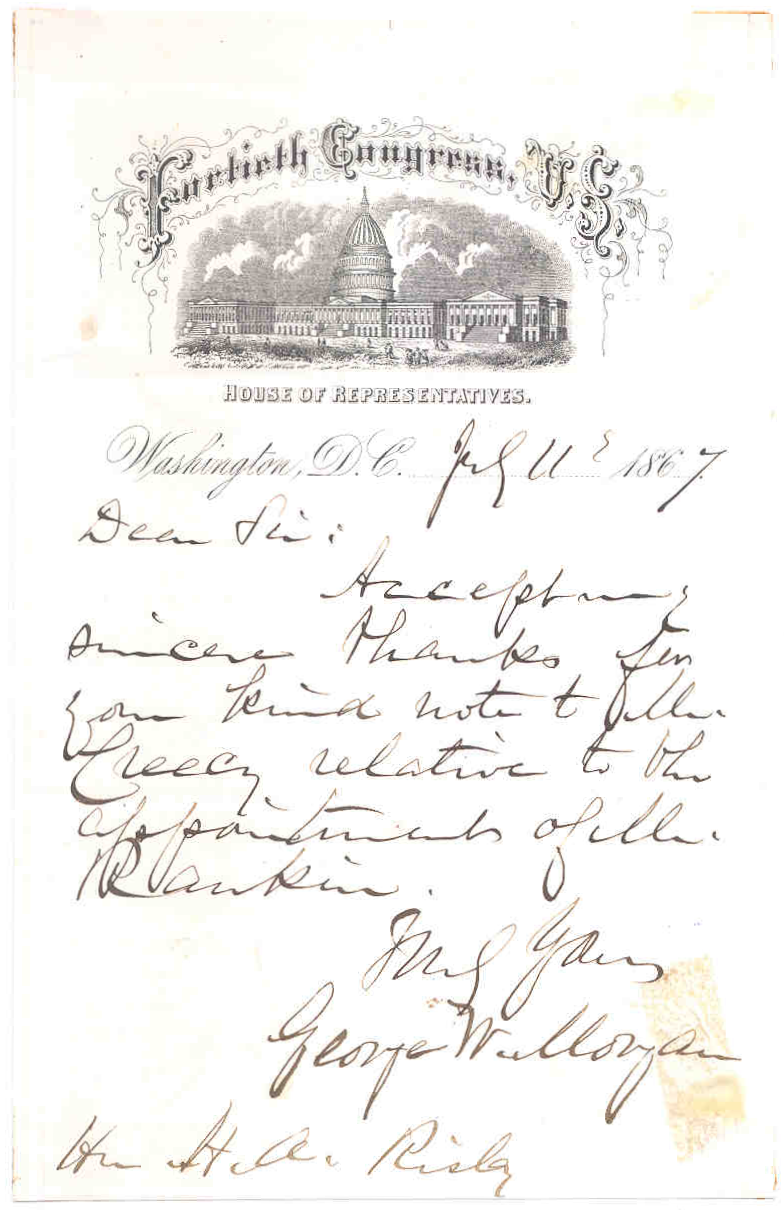 Fortieth Congress, U.S.
HOUSE OF REPRESENTATIVES.
Washington, D.C. July 11 1867.
Dear Sir:
Accept my
sincere thanks for
your kind note to Mr.
Creecy relative to the
appointment of Mr.
Rankin.
Truly Yours
George W. Morgan
Hon H. A. Risley